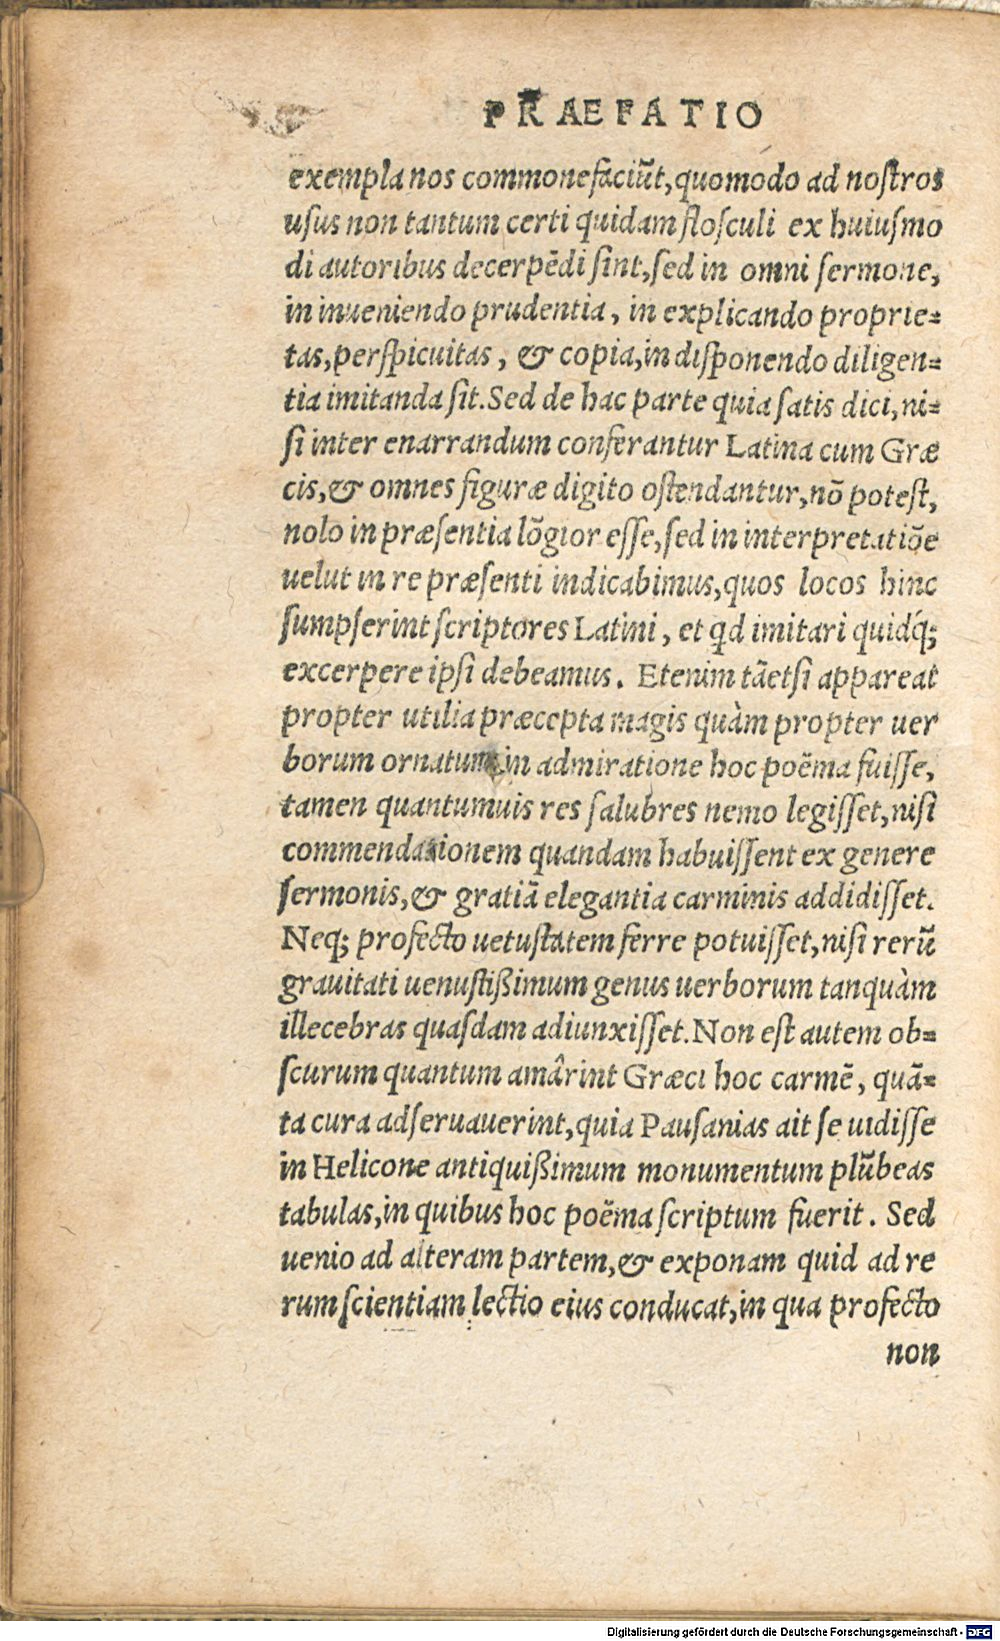 PRAEFATIO
exempla nos commonefaciũt, quomodo ad nostros
usus non tantum certi quidam flosculi ex huiusmo
di autoribus decerpẽdi sint, sed in omni sermone,
in inueniendo prudentia, in explicando proprie-
tas, perspicuitas, & copia, in disponendo diligen-
tia imitanda sit. Sed de hac parte quia satis dici, ni-
si inter enarrandum conferantur Latina cum Græ
cis, & omnes figuræ digito ostendantur, nõ potest,
nolo in præsentia lõgior esse, sed in interpretatiõe
uelut in re præsenti indicabimus, quos locos hinc
sumpserint scriptores Latini, et qd imitari quidq́;
excerpere ipsi debeamus. Etenim tãetsi appareat
propter utilia præcepta magis quàm propter uer
borum ornatum in admiratione hoc poëma fuisse,
tamen quantumuis res salubres nemo legisset, nisi
commendationem quandam habuissent ex genere
sermonis, & gratiã elegantia carminis addidisset.
Neq; profecto uetustatem ferre potuisset, nisi rerũ
grauitati uenustißimum genus uerborum tanquàm
illecebras quasdam adiunxisset. Non est autem ob-
scurum quantum amârint Græci hoc carmẽ, quã-
ta cura adseruauerint, quia Pausanias ait se uidisse
in Helicone antiquißimum monumentum plũbeas
tabulas, in quibus hoc poëma scriptum fuerit. Sed
uenio ad alteram partem, & exponam quid ad re
rum scientiam lectio eius conducat, in qua profecto
non
Digitalisierung gefördert durch die Deutsche Forschungsgemeinschaft - DFG